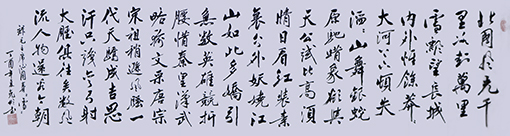 北國風光千
里冰封萬里
雪飄望長城
内外惟餘莽
大河上下頓失
滔滔山舞銀蛇
原馳蠟象欲與
天公試比高須
晴日看紅裝素
裹分外妖嬈江
山如此多嬌引
無數英雄競折
腰惜秦皇漢武
略輸文采唐宗
宋祖稍遜風騷一
代天驕成吉思
汗只識彎弓射
大雕俱往矣數風
流人物還看今朝
毛主席沁園春雪
丁酉年